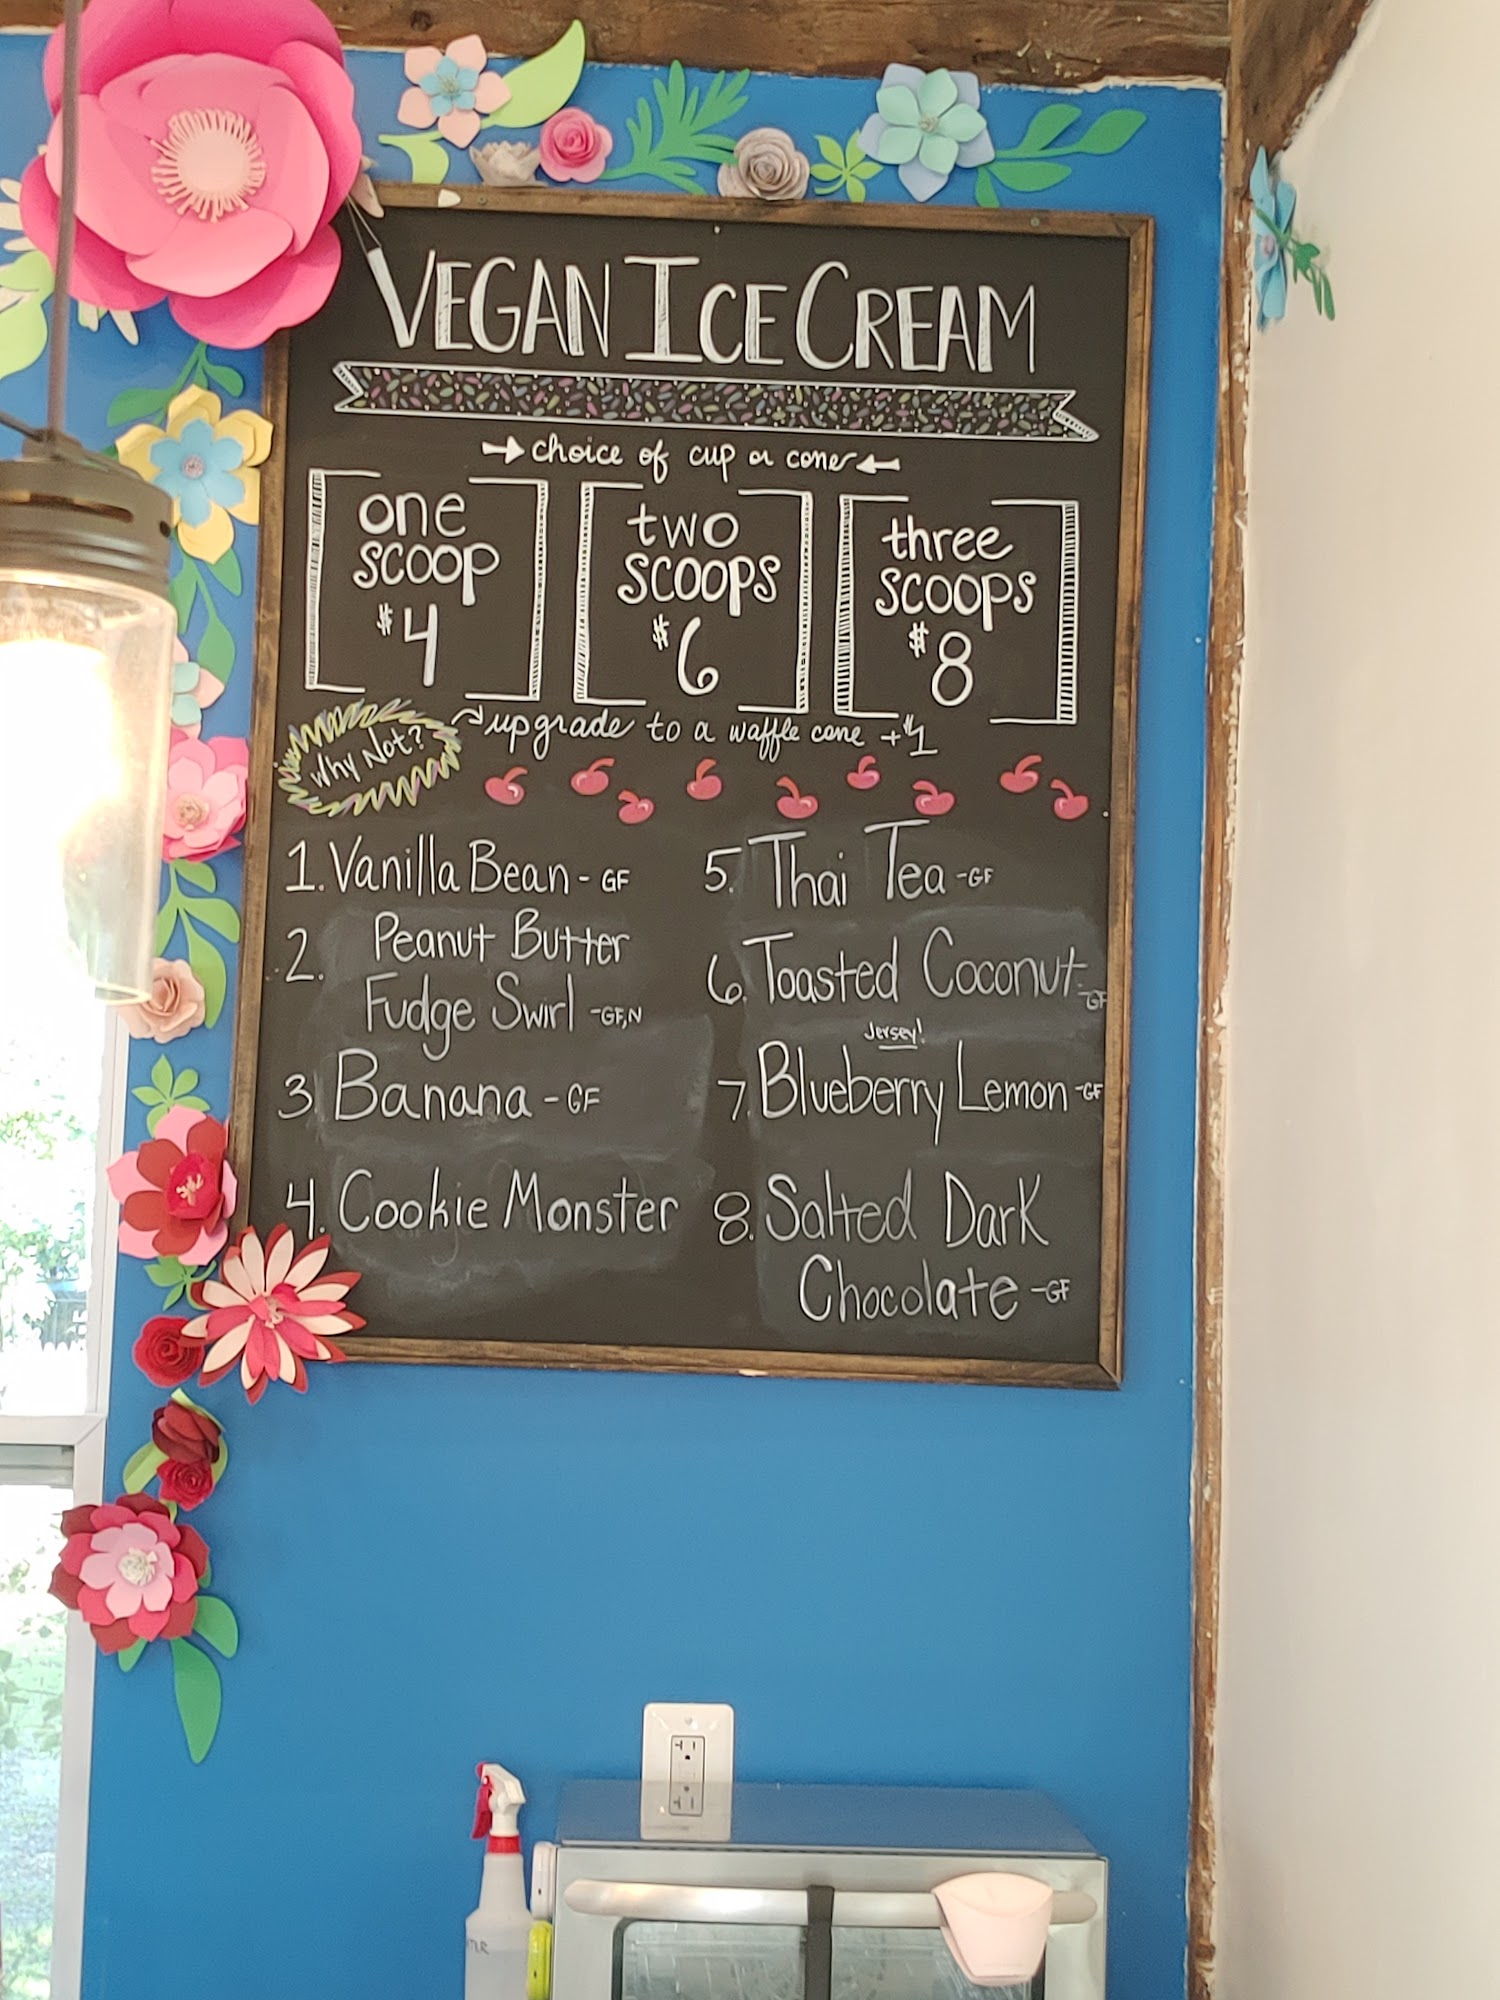 VEGAN ICE CREAM
choice of cup or cone
one
SCOOP
$4
two
SCOOPS
$6
three
SCOOPS
$8
Why Not?
upgrade to a waffle cone +$1
1. Vanilla Bean - GF
2. Peanut Butter
Fudge Swirl - GF, N
3 Banana - GF
4. Cookie Monster
5. Thai Tea - GF
6. Toasted Coconut - GF
Jersey!
7. Blueberry Lemon - GF
8. Salted Dark
Chocolate - GF